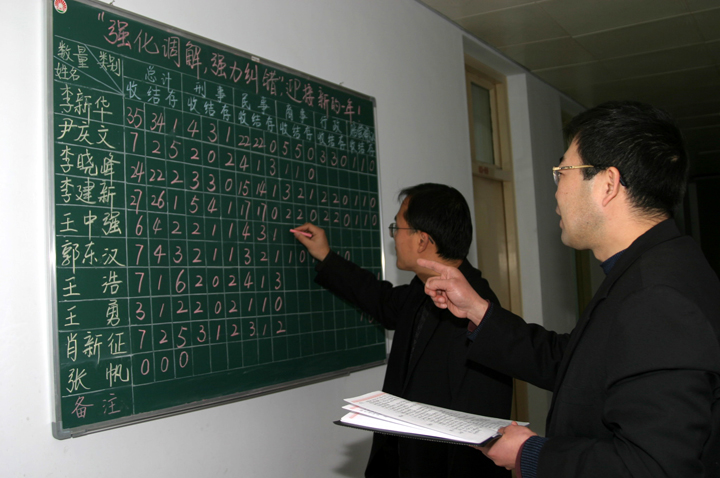 “强化调解，强力纠错”迎接新的一年！
数量 类别
姓名
总计 刑事 民事 商事 行政
收结存 收结存 收结存 收结存 收结存 收结存
李新华 35 34 1 4 3 1 22 22 0 5 5 0 3 3 0 1 1 0
尹庆文 7 2 5 2 0 2 4 1 3 1 0
李晓峰 24 22 2 3 3 0 15 14 1 3 2 1 2 2 0 1 1 0
李建新 27 26 1 5 4 1 17 17 0 2 2 0 2 2 0 1 1 0
王中强 6 4 2 2 1 1 4 3 1
郭东汉 7 4 3 2 1 1 3 2 1 1 0
王浩 7 1 6 2 0 2 4 1 3
王勇 3 1 2 2 0 2 1 1 0
肖新征 7 2 5 3 1 2 3 1 2
张帆 0 0 0
备注